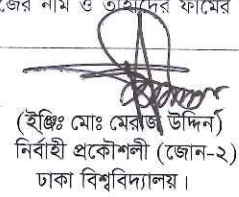 জের নাম ও তাহাদের ফার্মের
(ইঞ্জিঃ মোঃ মেরাজ উদ্দিন)
নির্বাহী প্রকৌশলী (জোন-২)
ঢাকা বিশ্ববিদ্যালয়।